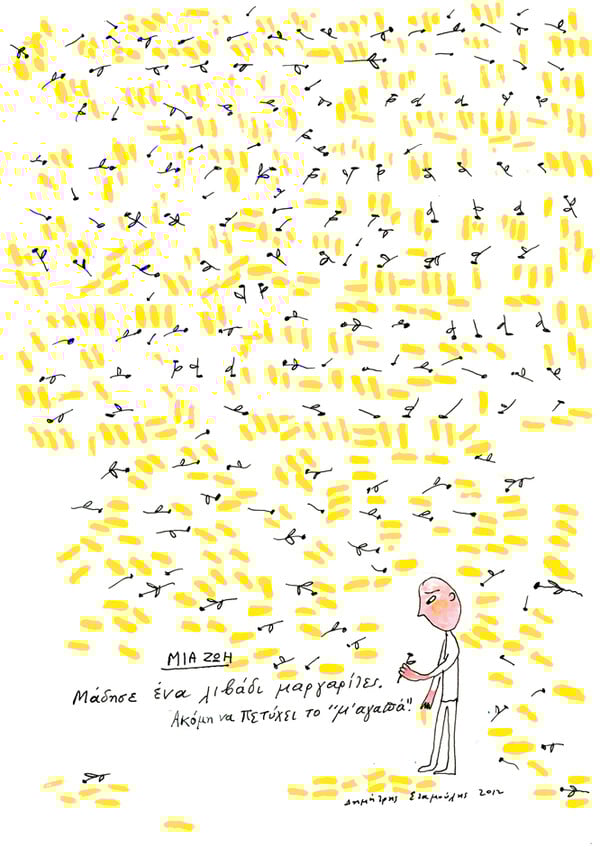 ΜΙΑ ΖΩΗ
Μάδησε ένα λιβάδι μαργαρίτες.
Ακόμη να πετύχει το "μ'αγαπά".
Δημήτρης Σταμούλης 2012